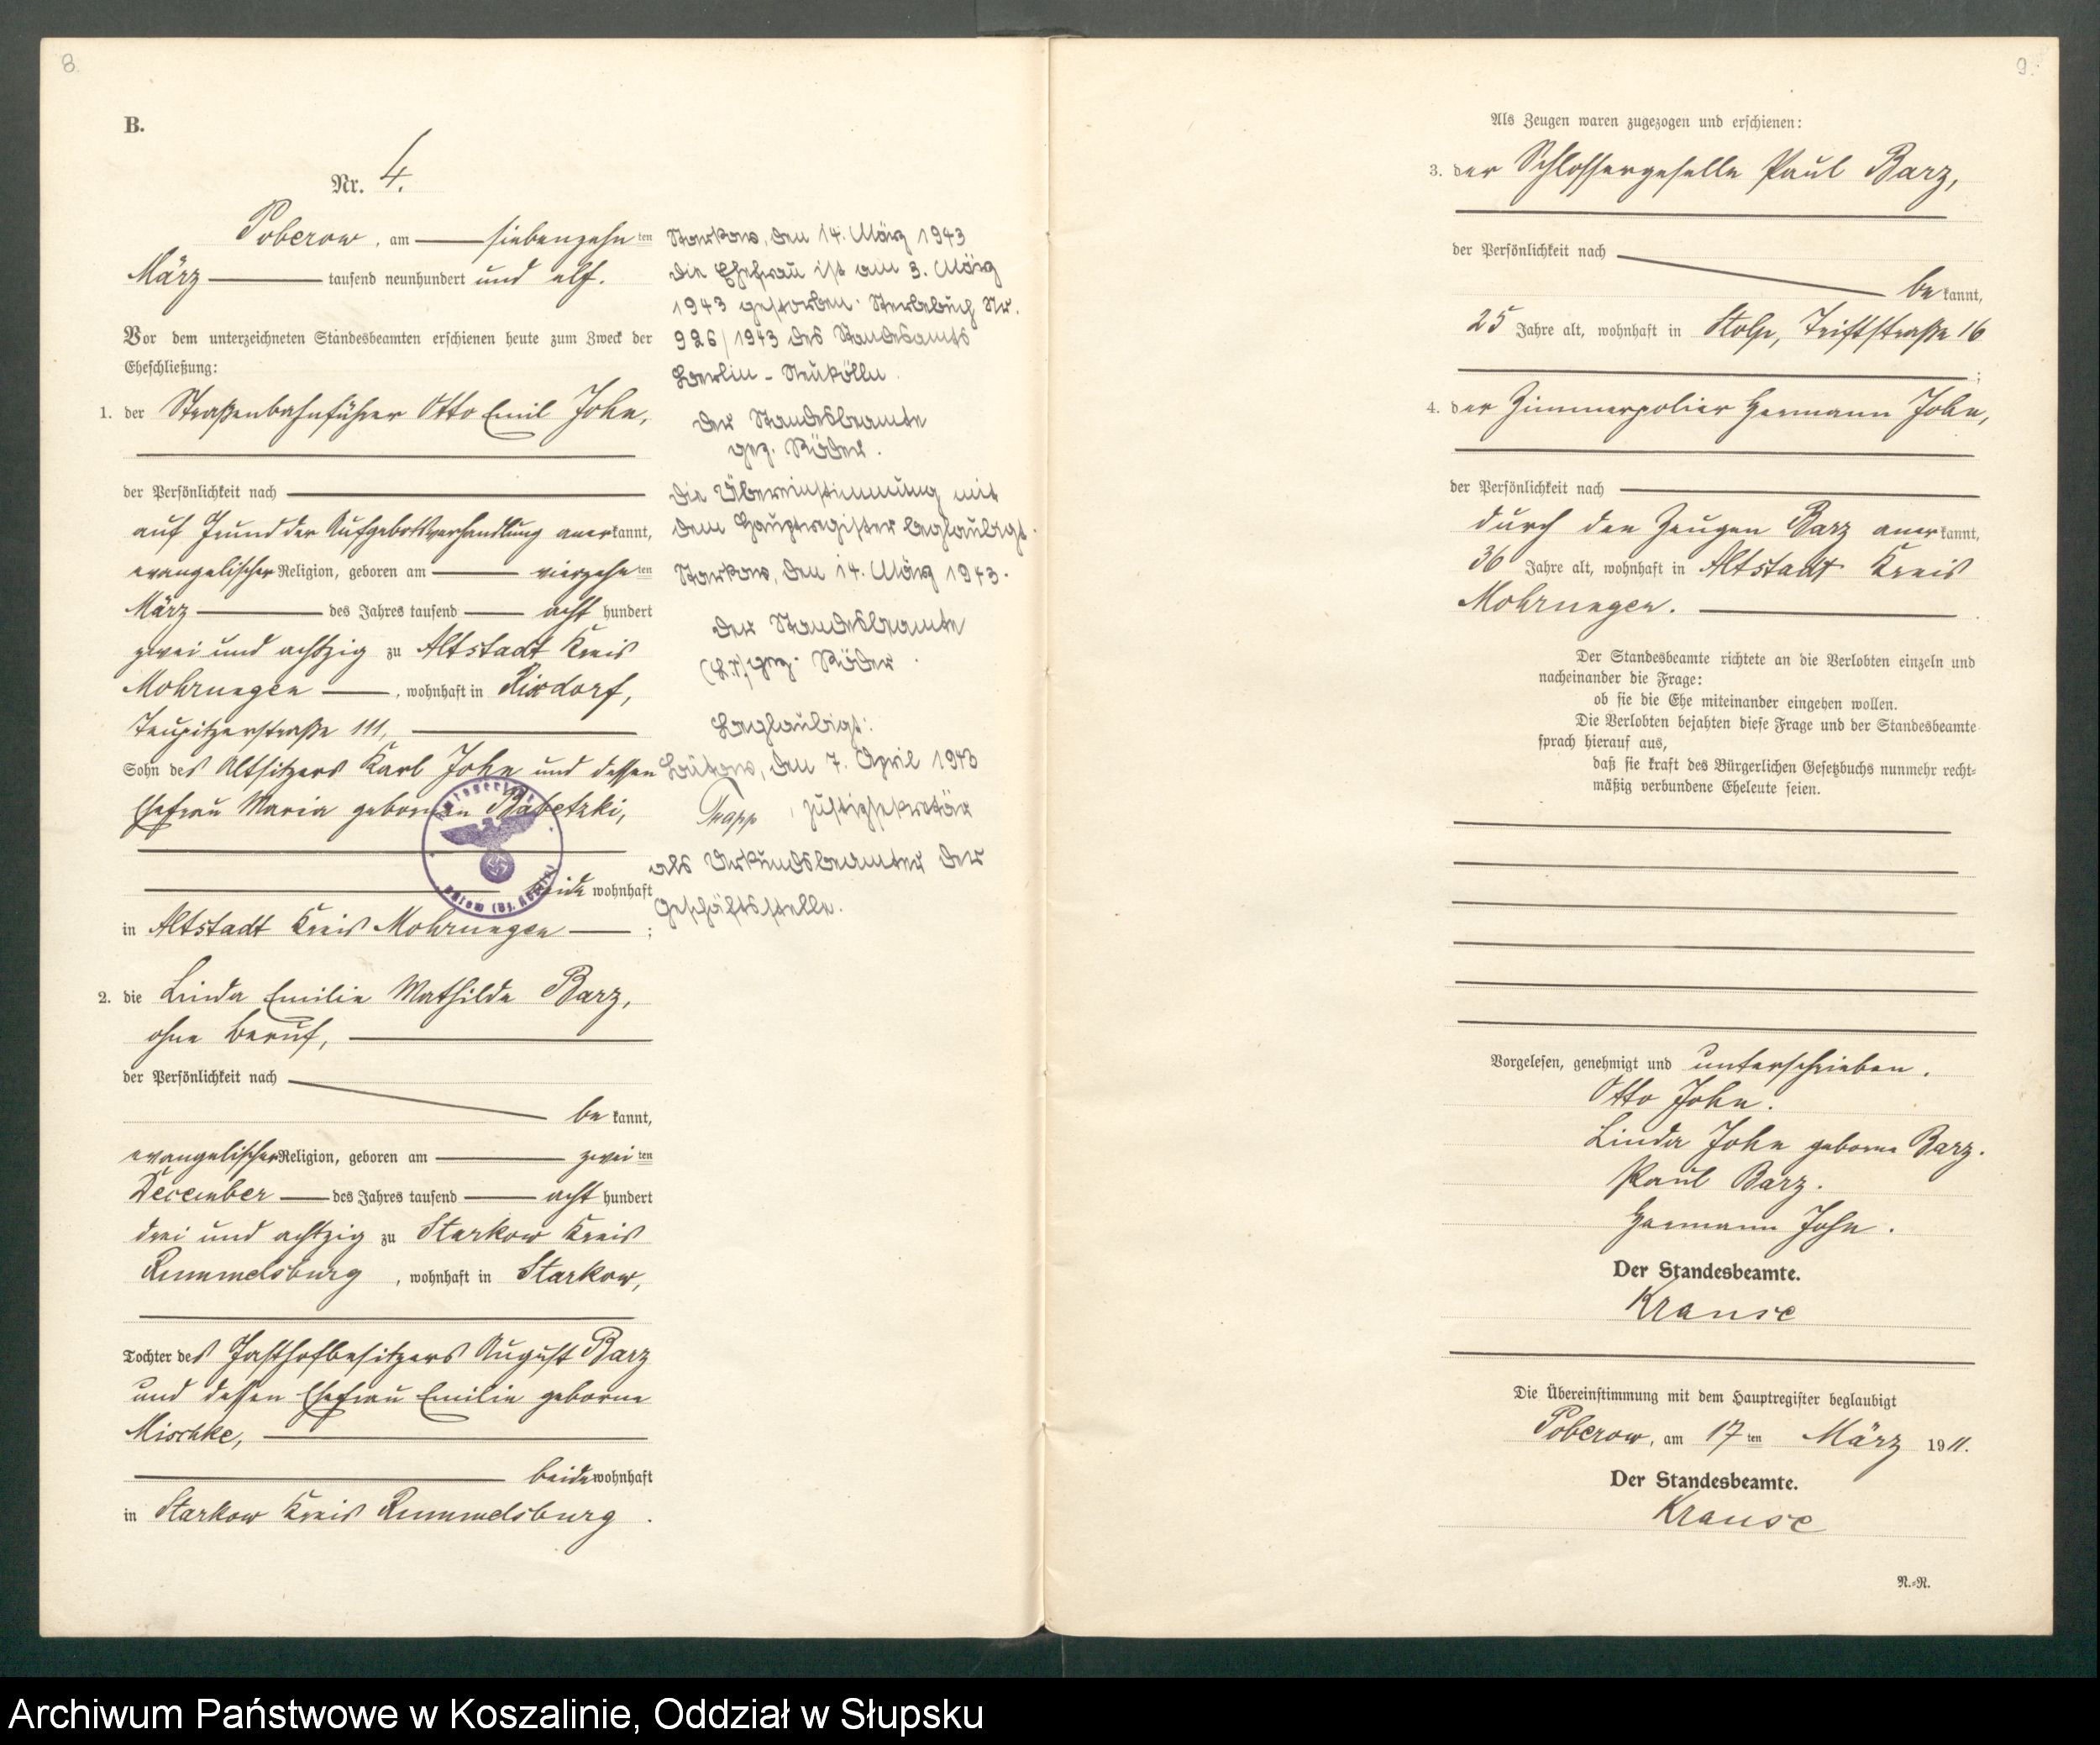 8.
B.
Nr. 4.
Poberow, am siebenzehnten
März tausend neunhundert und elf.
Vor dem unterzeichneten Standesbeamten erschienen heute zum Zweck der
Eheschließung:
1. der Straßenbahnführer Otto Emil John,
der Persönlichkeit nach
auf Grund der Aufgebotsverhandlung anerkannt,
evangelischer Religion, geboren am vierzehnten
März des Jahres tausend acht hundert
zwei und achtzig zu Altstadt Kreis
Mohrungen, wohnhaft in Rixdorf,
Teupitzerstraße 111,
Sohn des Altsitzers Karl John und dessen
Ehefrau Maria gebornen Babetzki,
beide wohnhaft
in Altstadt Kreis Mohrungen ;
2. die Linda Emilie Mathilde Barz,
ohne Beruf,
der Persönlichkeit nach
be kannt,
evangelischer Religion, geboren am zweiten
December des Jahres tausend acht hundert
drei und achtzig zu Starkow Kreis
Rummelsburg, wohnhaft in Starkow,
Tochter des Gasthofbesitzers August Barz
und dessen Ehefrau Emilie geborne
Mischke,
beide wohnhaft
in Starkow Kreis Rummelsburg.
Starkow, den 14. März 1943
Die Ehefrau ist am 3. März
1943 gestorben. Sterbebuch Nr.
926/1943 des Standesamts
Berlin-Neukölln.
Der Standesbeamte
gez. Röder.
Die Übereinstimmung mit
dem Hauptregister beglaubigt.
Starkow, den 14. März 1943.
Der Standesbeamte
(L.S.) gez. Röder.
Beglaubigt:
Bütow, den 7. April 1943
Justizsekretär
als Urkundsbeamter der
Geschäftsstelle.
Amtsgericht
Bütow (Bz. Köslin)
9.
Als Zeugen waren zugezogen und erschienen:
3. der Schlossergeselle Paul Barz,
der Persönlichkeit nach
be kannt,
25 Jahre alt, wohnhaft in Stolp, Triftstraße 16
;
4. der Zimmerpolier Hermann John,
der Persönlichkeit nach
durch den Zeugen Barz anerkannt,
36 Jahre alt, wohnhaft in Altstadt Kreis
Mohrungen.
Der Standesbeamte richtete an die Verlobten einzeln und
nacheinander die Frage:
ob sie die Ehe miteinander eingehen wollen.
Die Verlobten bejahten diese Frage und der Standesbeamte
sprach hierauf aus,
daß sie kraft des Bürgerlichen Gesetzbuchs nunmehr recht-
mäßig verbundene Eheleute seien.
Vorgelesen, genehmigt und unterschrieben.
Otto John.
Linda John geborne Barz.
Paul Barz.
Hermann John.
Der Standesbeamte.
Krause
Die Übereinstimmung mit dem Hauptregister beglaubigt
Poberow, am 17ten März 1911.
Der Standesbeamte.
Krause
N.-R.
Archiwum Państwowe w Koszalinie, Oddział w Słupsku